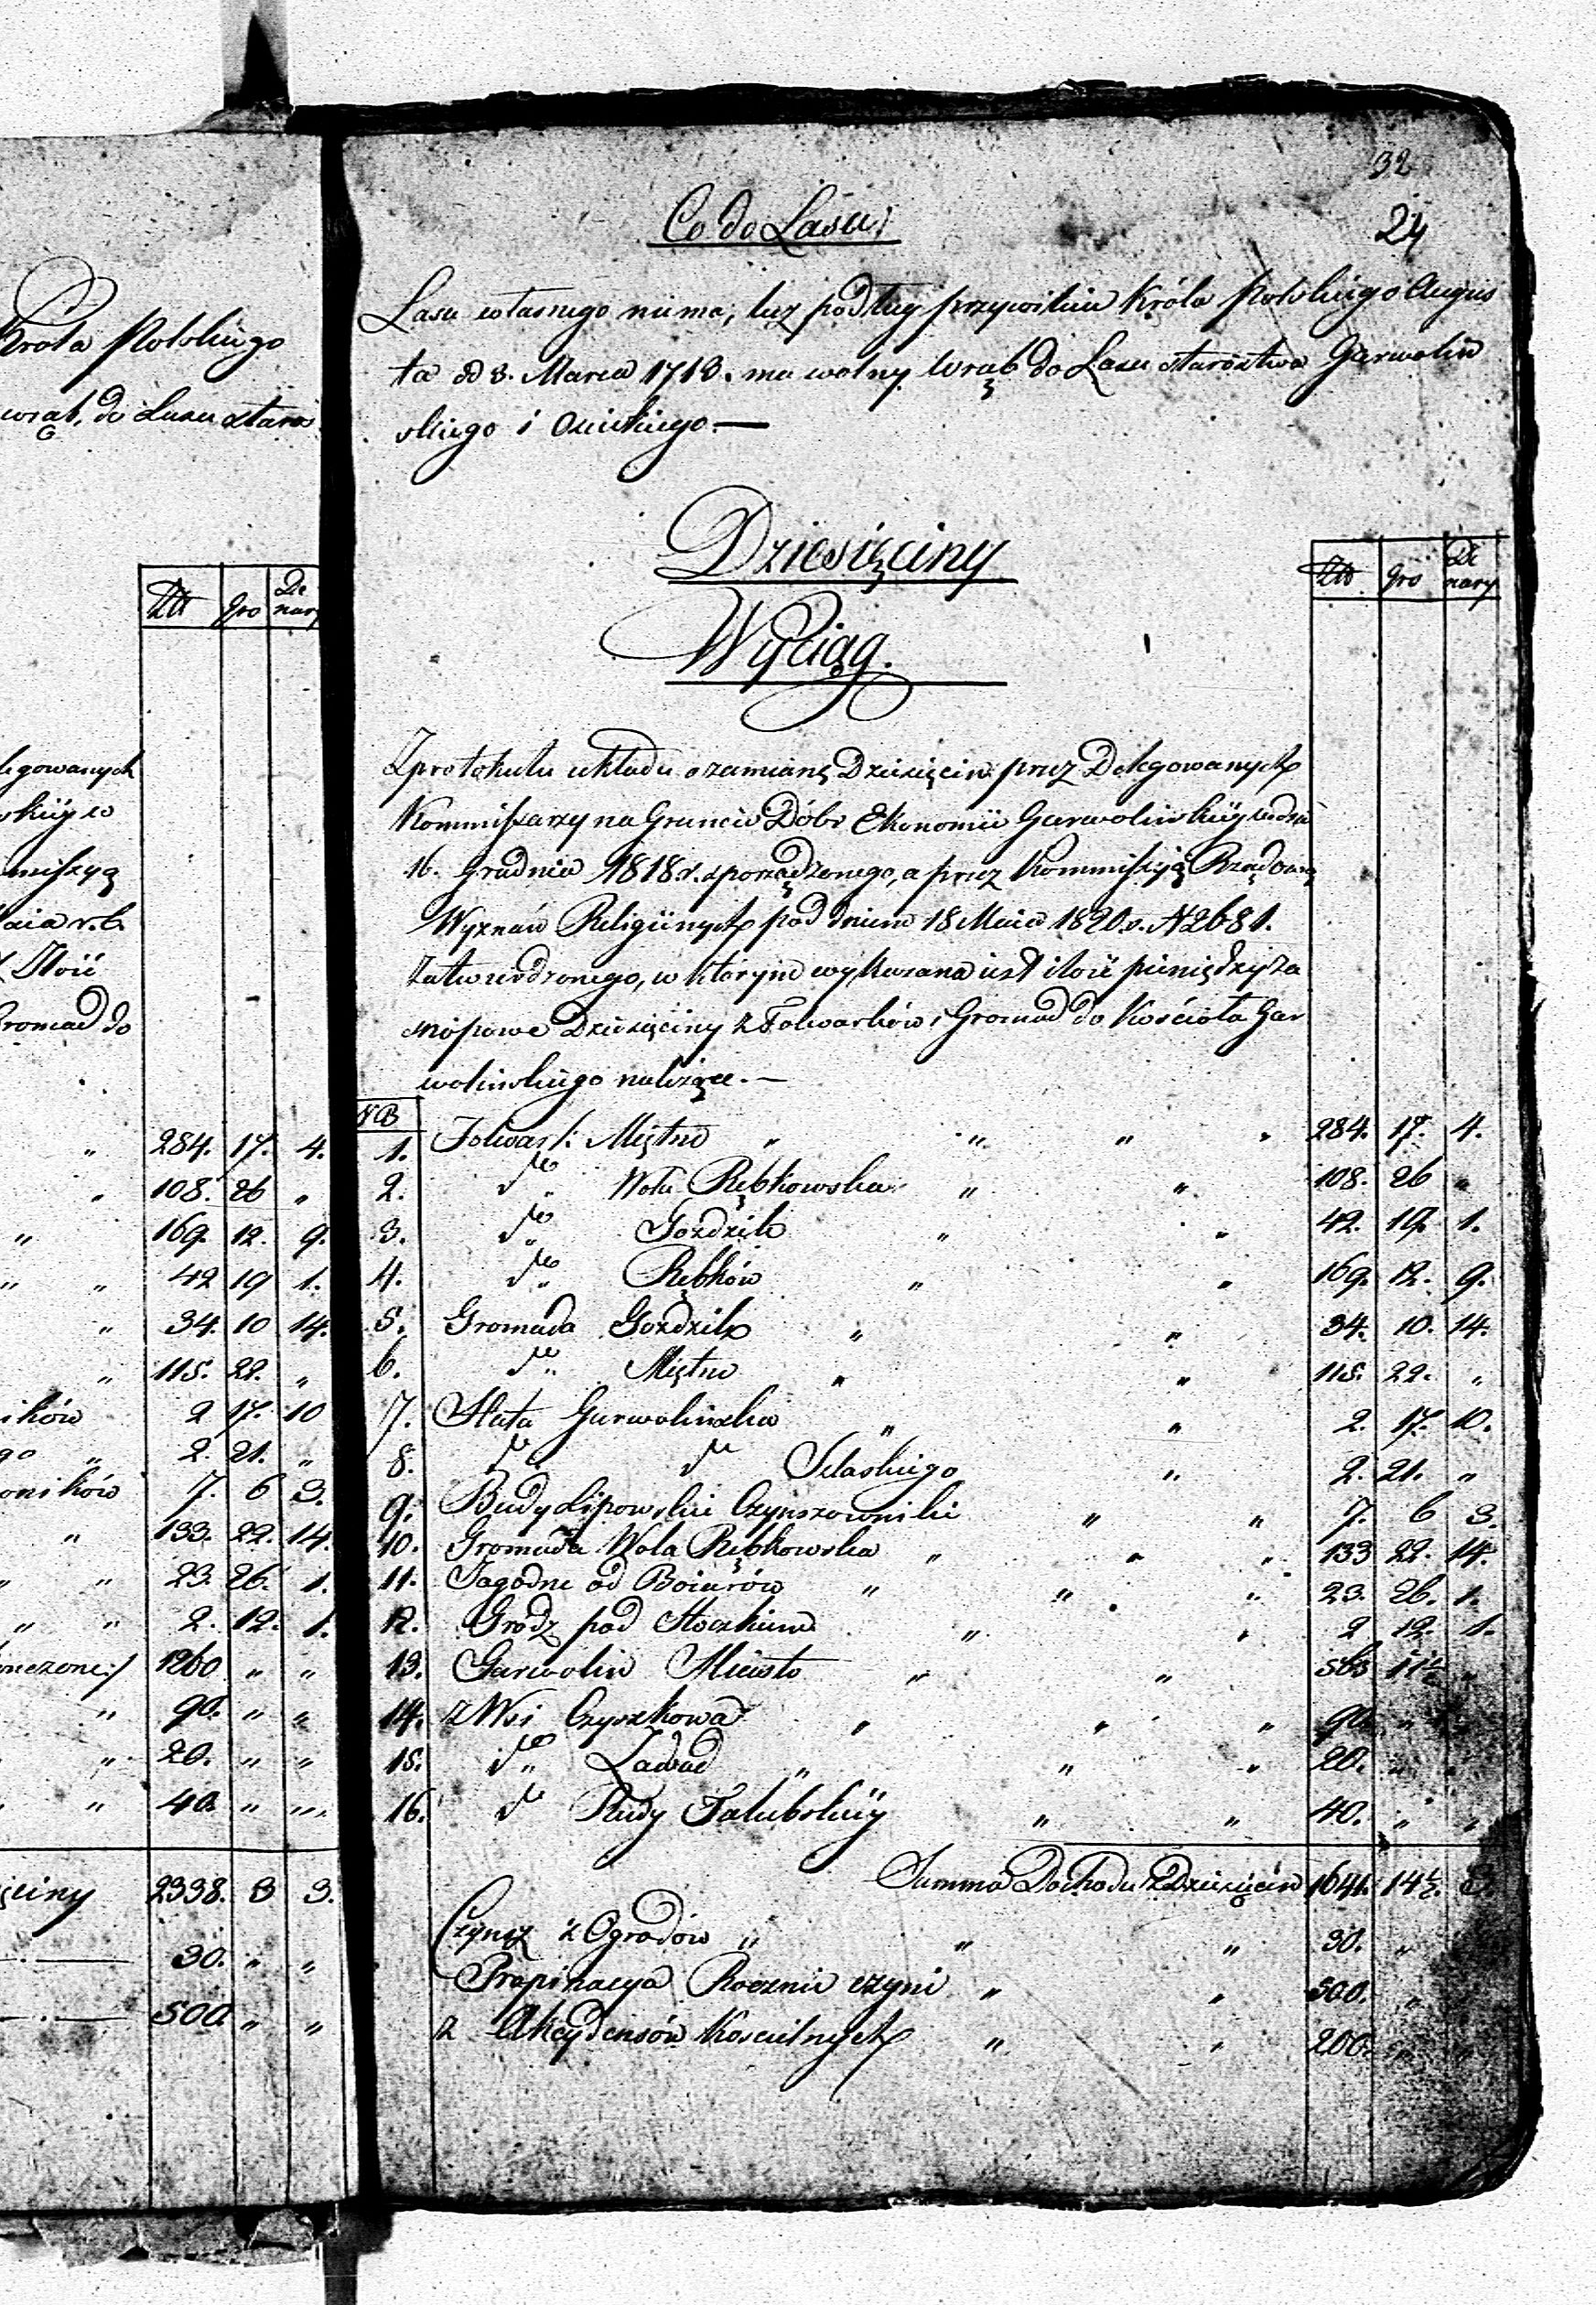 Krola Polskiego
wrąb, do Lasu staros
Złt gro De
nary
legowanych
skiiy w
miszyą
Maia r.b.
Ilość
Gromad do
" 284. 17. 4.
" 108. 26 "
" 169. 12. 9.
" " 42 19 1.
" 34. 10 14.
" 115. 22. "
ików 2 17. 10
go " 2. 21. "
oników 7. 6 3.
" 133. 22. 14.
" " 23. 26. 1.
" " 2. 12. 1.
ończone:/ 1260 " "
" 90. " "
" 20. " "
" " 40. " "
ęciny 2338. 3 3.
30. " "
500 " "
32
24
Co do Lasu
Lasu własnego nima, lecz podług przywileiu Króla Polskiego Augus
ta od 3. Marca 1713. ma wolny Wrąb do Lasu starostwa Garwolin
skiego i Osieckiego.—
Dziesięciny
Wyciąg.
Złt gro De
nary
Z protokułu układu o zamianę Dziesięcin przez Delegowanych
Kommissarzy na Gruncie Dóbr Ekonomii Garwolińskiiy w dniu
16. Grudnia 1818 r. sporządzonego, a przez Kommissyią Rządową
Wyznań Religiinych pod dniem 18 Maia 1820. r. N 2681.
Zatwierdzonego, w którym wykazana iest ilość pieniędzy za
snopowe Dziesięciny z Folwarków i Gromad do Kościoła Gar
wolińskiego należące.—
NB
1. Folwark: Miętne " " " " 284. 17. 4.
2. dto " Wola Rębkowska " " 108. 26 "
3. dto " Gozdzik " " 42. 19. 1.
4. dto " Rębków " " 169. 12. 9.
5. Gromada Gozdzik " " 34. 10. 14.
6. dto " Miętne " " 115. 22. "
7. Huta Garwolińska " " 2. 17. 10.
8. dto dto Szlaskiego " 2. 21. "
9. Budy Lipowskie Czynszowniki " " 7. 6 3.
10. Gromada Wola Rębkowska " " " 133 22. 14.
11. Jagodne od Boiarów " " " 23. 26. 1.
12. Grodz pod Stoczkiem " " 2 12. 1.
13. Garwolin Miasto " " 563 11½ "
14. z Wsi Czyszkowa " " " 90. "
15. dto " Zawad " " " 20. " "
16. dto Rudy Talubskiiy " " 40. " "
Summa Dochodu z Dziesięcin 1641. 14½. 3.
Czynsz z Ogrodów " " " 30. "
Propinacya Rocznie czyni " " 500. "
z Akcydensów Koscielnych " " 200. " "